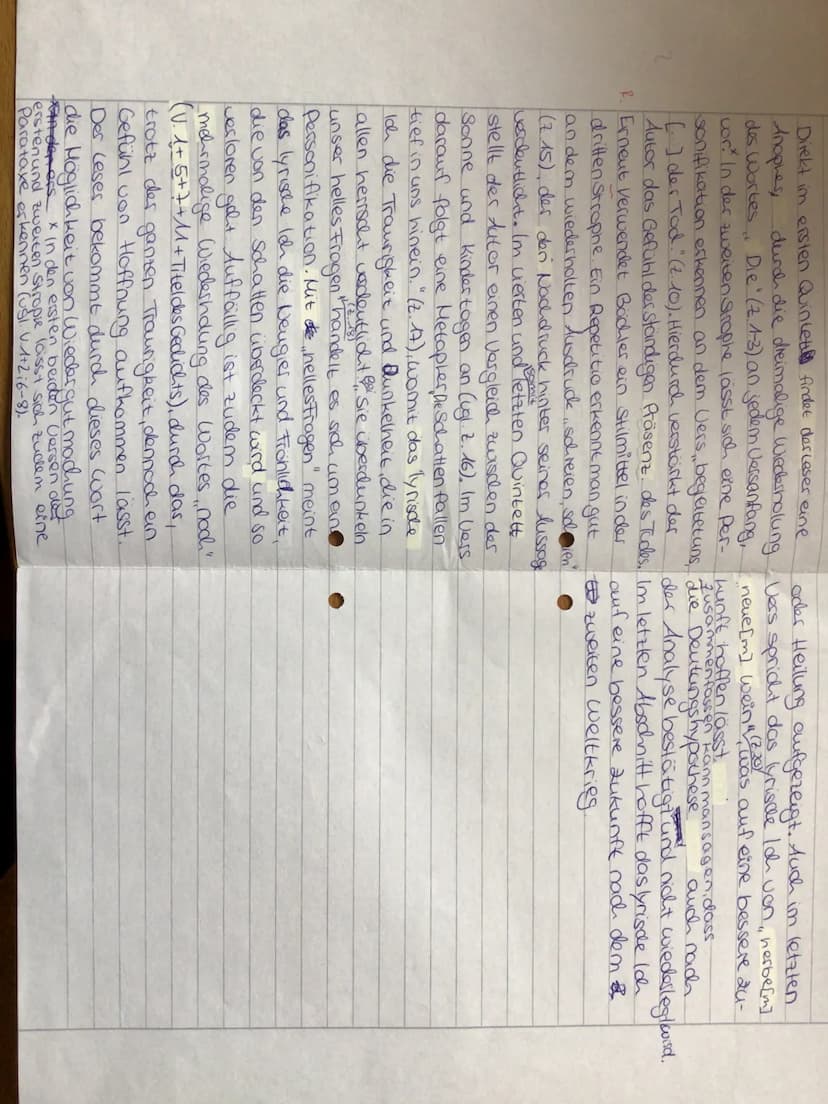 Direkt im ersten Quintett findet der Leser eine
Anapher, durch die dreimalige Wiederholung
des Wortes „Die" (Z.1-3) an jedem Versanfang,
vor.* In der zweiten Strophe lässt sich eine Per-
sonifikation erkennen an dem Vers „begleitet uns
[...] der Tod." (Z.10). Hierdurch verstärkt der
Autor das Gefühl der ständigen Präsenz des Todes.
R. Erneut verwendet Bächler ein Stilmittel in der
dritten Strophe. Ein Repetitio erkennt man gut
an dem wiederholten Ausdruck „schreien, schreien"
(Z.15), der den Nachdruck hinter seiner Aussage
verdeutlicht. Im vierten und letzten Quintett
stellt der Autor einen Vergleich zwischen der
Sonne und Kindertagen an (vgl. Z.16). Im Vers
darauf folgt eine Metapher „Die Schatten fallen
tief in uns hinein." (Z.17), womit das lyrische
Ich die Traurigkeit und Dunkelheit, die in
allen herrscht verdeutlicht. „Sie überdunkeln
unser helles Fragen" (Z.18) handelt es sich um eine
Personifikation. Mit „helles Fragen" meint
das lyrische Ich die Neugier und Fröhlichkeit,
die von den Schatten überdeckt wird und so
verloren geht. Auffällig ist zudem die
mehrmalige Wiederholung des Wortes „noch"
(V.1+5+7+11+Titel des Gedichts), durch das,
trotz der ganzen Traurigkeit, dennoch ein
Gefühl von Hoffnung aufkommen lässt.
Der Leser bekommt durch dieses Wort
die Möglichkeit von Wiedergutmachung
* In den ersten beiden Versen der
ersten und zweiten Strophe lässt sich zudem eine
Parataxe erkennen (vgl. V.1-2; 6-8).
oder Heilung aufgezeigt. Auch im letzten
Vers spricht das lyrische Ich von „herbe[m]
neue[m] Wein" (Z.20), was auf eine bessere Zu-
kunft hoffen lässt.
Zusammenfassen kann man sagen, dass
die Deutungshypothese auch nach
der Analyse bestätigt und nicht wiederlegt wird.
Im letzten Abschnitt hofft das lyrische Ich
auf eine bessere Zukunft nach dem
zweiten Weltkrieg.